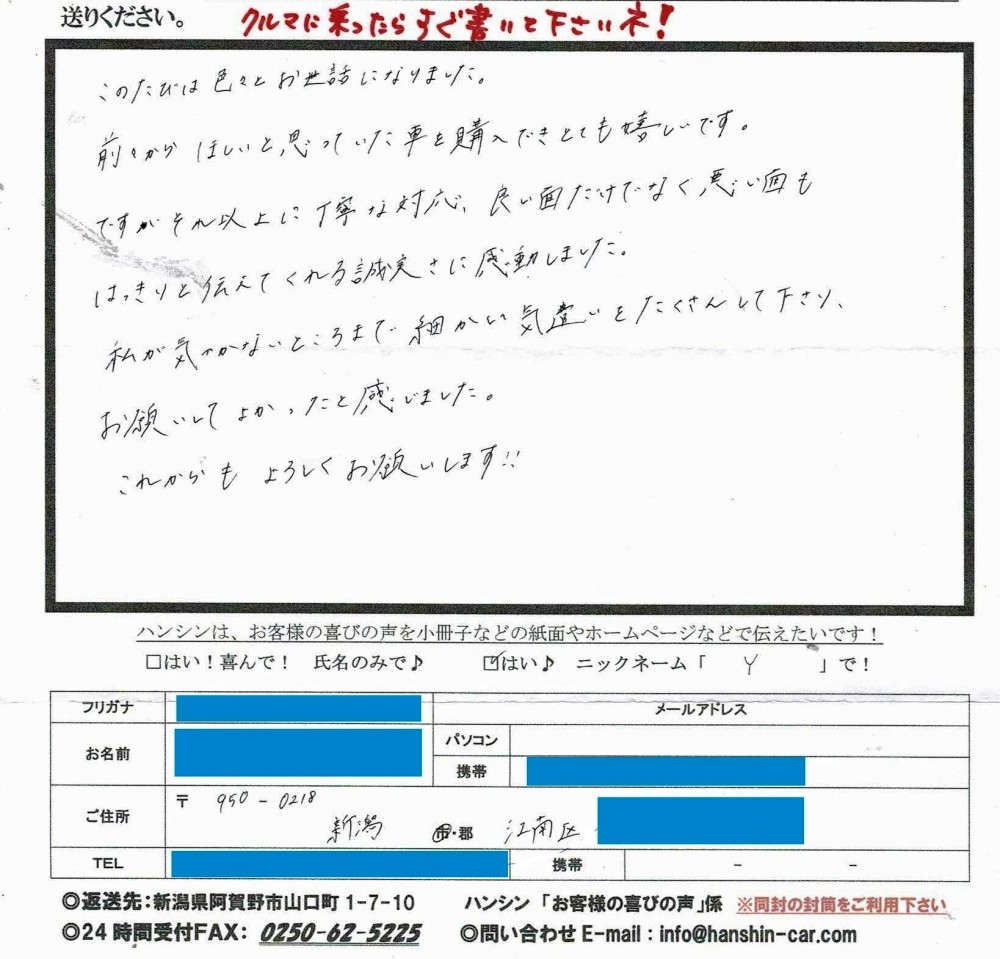 送りください。
クルマに乗ったらすぐ書いて下さいネ!
このたびは色々とお世話になりました。
前々からほしいと思っていた車を購入できとても嬉しいです。
ですがそれ以上に丁寧な対応、良い面だけでなく悪い面も
はっきりと伝えてくれる誠実さに感動しました。
私が気づかないところまで細かい気遣いをたくさんして下さり、
お願いしてよかったと感じました。
これからもよろしくお願いします!!
ハンシンは、お客様の喜びの声を小冊子などの紙面やホームページなどで伝えたいです!
□はい!喜んで! 氏名のみで♪ ☑はい♪ ニックネーム「 Y 」で!
フリガナ メールアドレス
お名前 パソコン
携帯
ご住所 〒 950-0218
新潟 市・郡 江南区
TEL 携帯 - -
◎返送先:新潟県阿賀野市山口町1-7-10 ハンシン「お客様の喜びの声」係 ※同封の封筒をご利用下さい
◎24時間受付FAX: 0250-62-5225 ◎問い合わせE-mail:info@hanshin-car.com